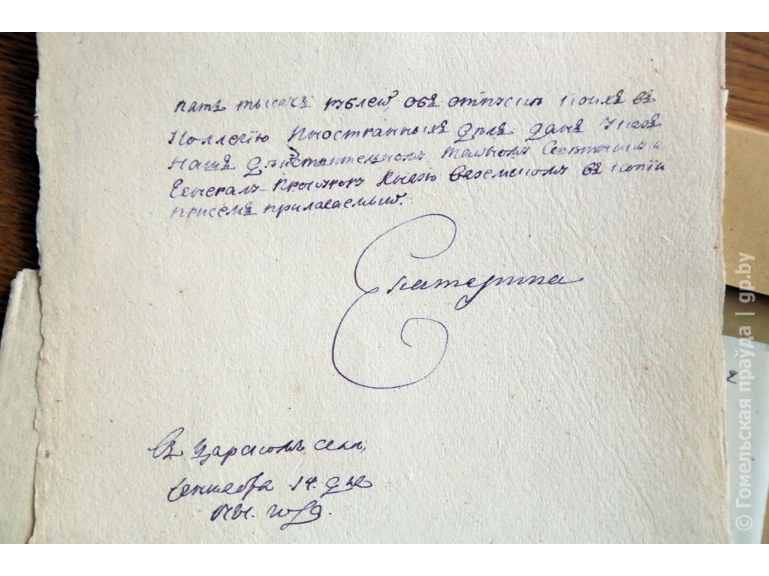 пять тысячь рублей объ отпускѣ коихъ въ
Коллегію Иностранныхъ дѣлъ данъ указъ
нашъ дѣйствительному тайному Совѣтнику и
Генералъ-Прокурору Князю Вяземскому въ копіи
присемъ прилагаемый.
Екатерина
Въ Царскомъ селѣ,
14. дня
года.
© Гомельская праўда | gp.by